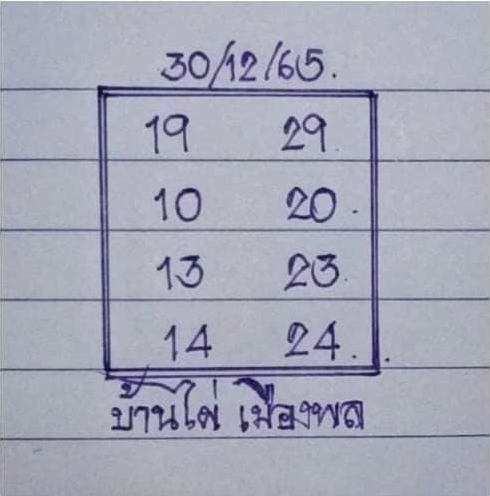 30/12/65.
19 29.
10 20.
13 23.
14 24..
บ้านไผ่ เมืองพล